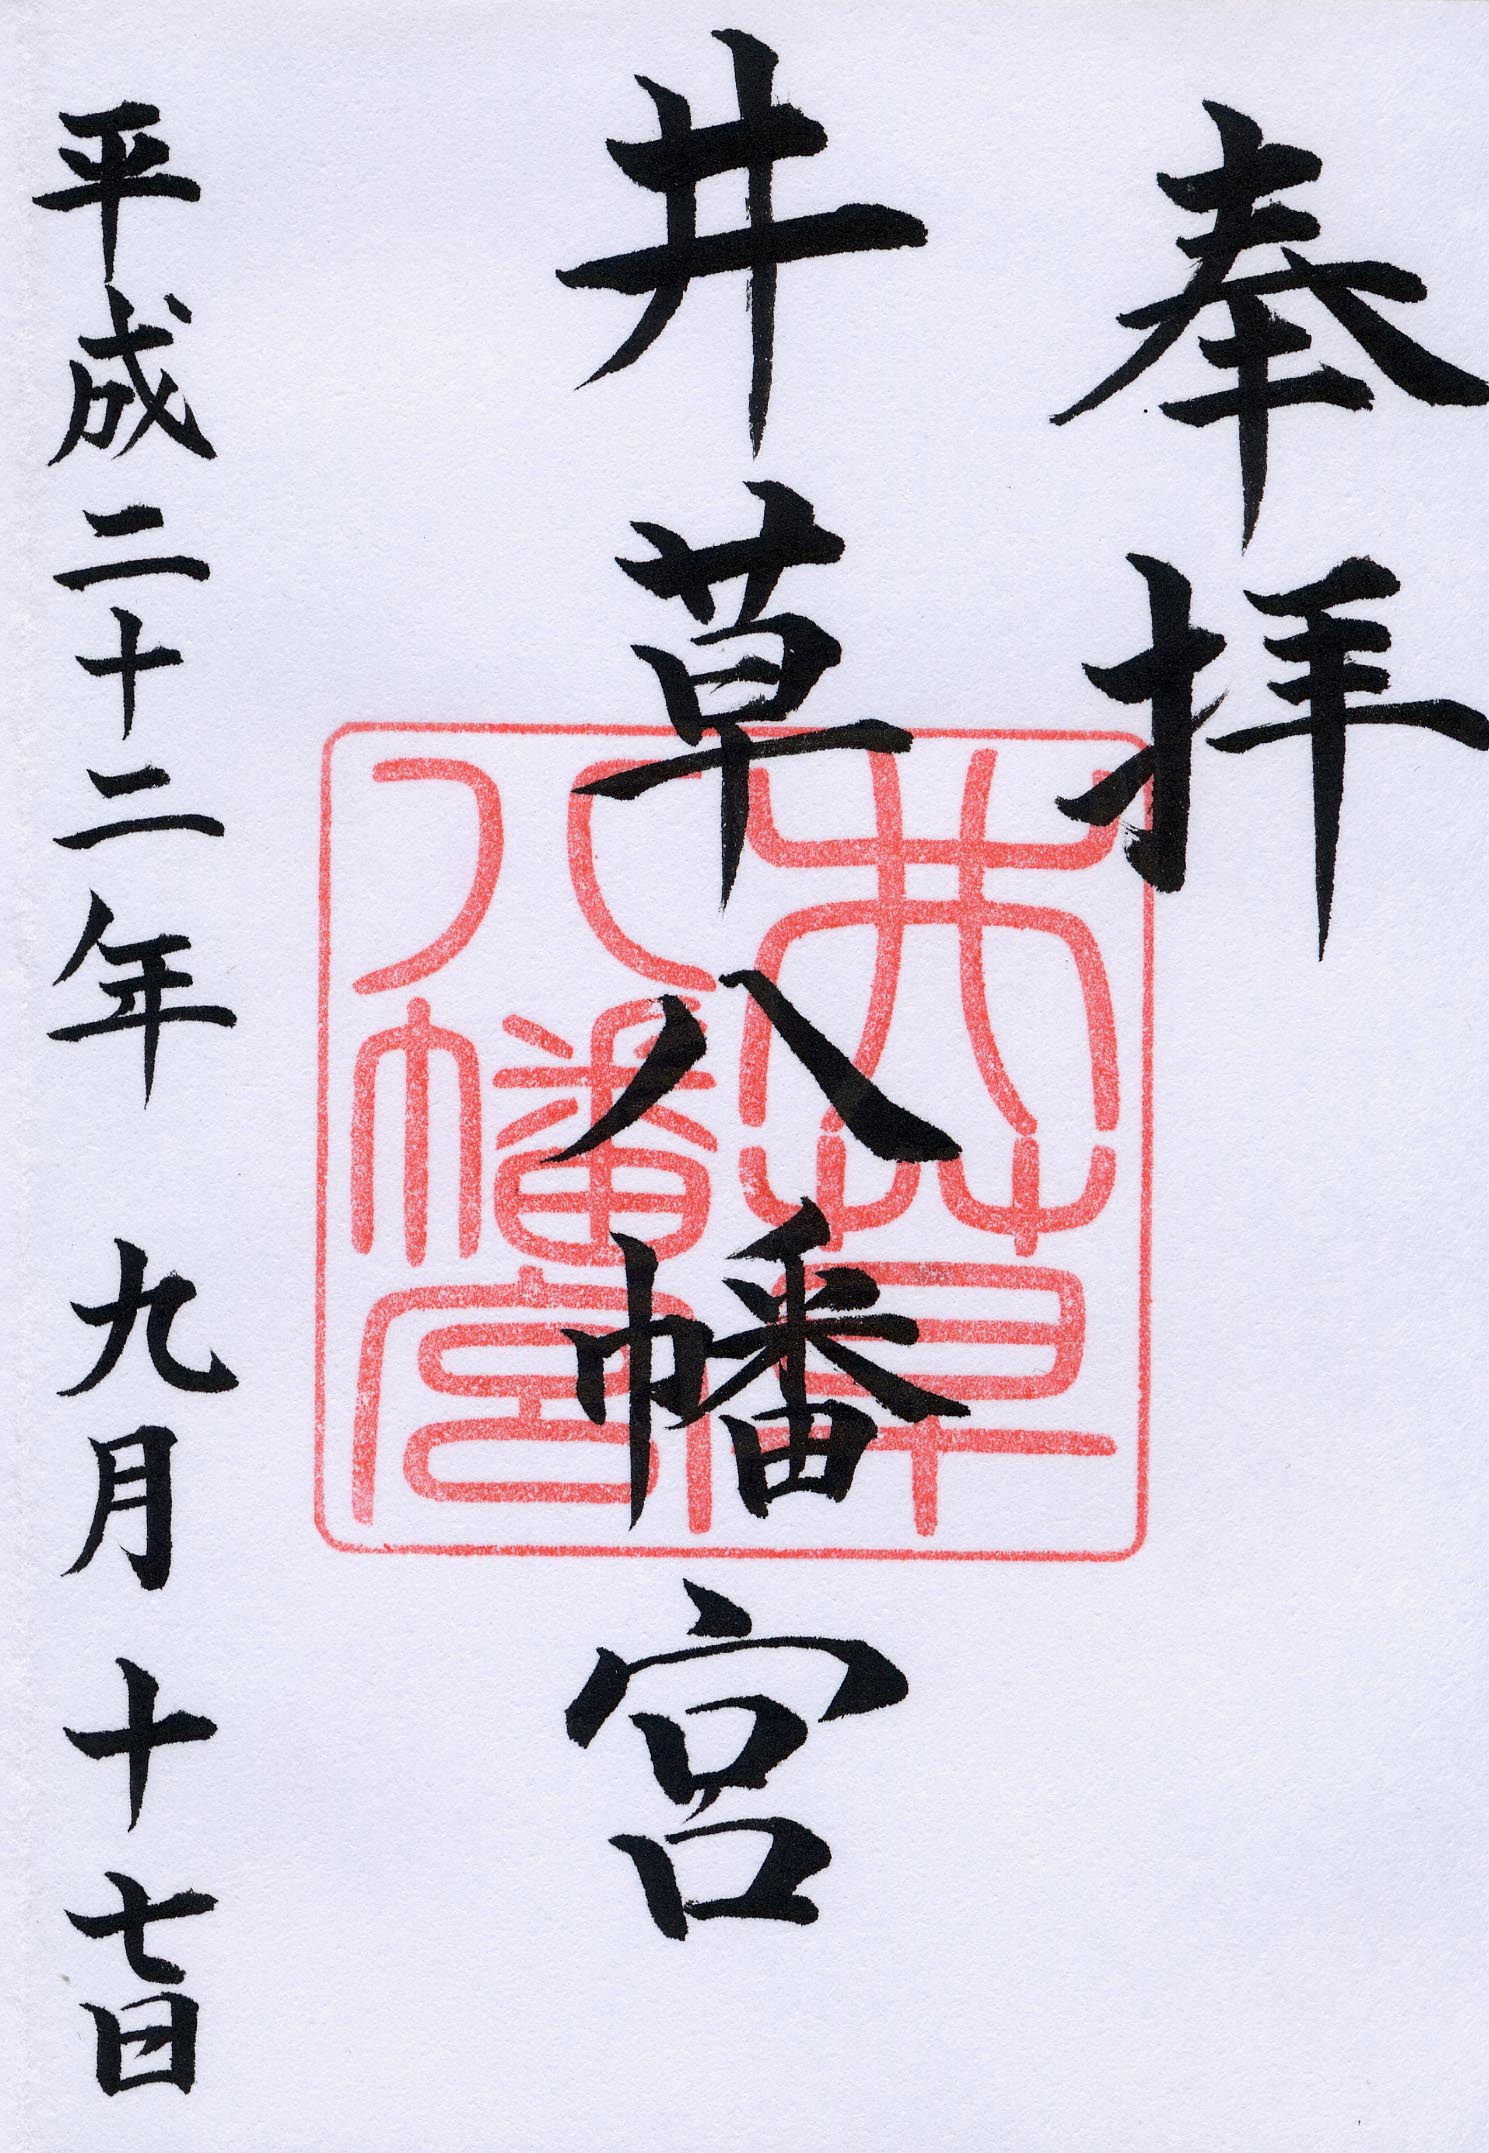 奉拝
井草八幡宮
井草
八幡宮
平成二十二年 九月十七日